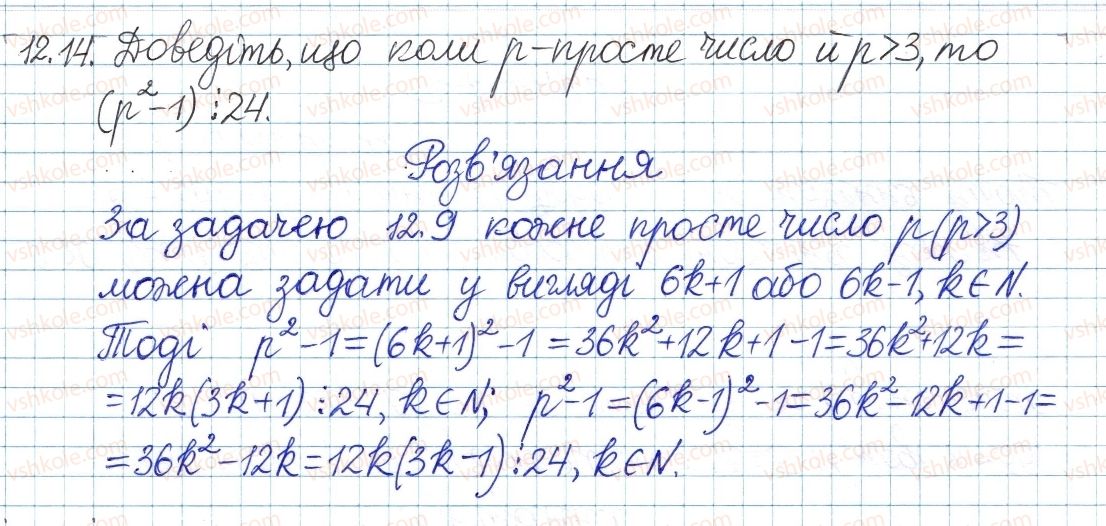 12.14. Доведіть, що коли p-просте число й p>3, то
(p²-1)⋮24.
Розв'язання
За задачею 12.9 кожне просте число p(p>3)
можна задати у вигляді 6k+1 або 6k-1, k∈N.
Тоді p²-1=(6k+1)²-1=36k²+12k+1-1=36k²+12k=
=12k(3k+1)⋮24, k∈N; p²-1=(6k-1)²-1=36k²-12k+1-1=
=36k²-12k=12k(3k-1)⋮24, k∈N.